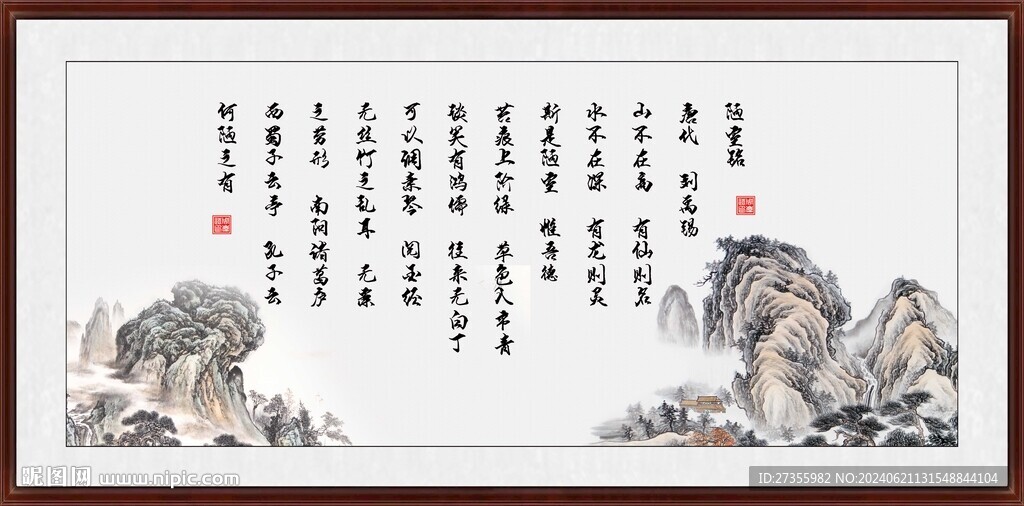 陋室铭
唐代 刘禹锡
山不在高 有仙则名
水不在深 有龙则灵
斯是陋室 惟吾德
苔痕上阶绿 草色入帘青
谈笑有鸿儒 往来无白丁
可以调素琴 阅金经
无丝竹之乱耳 无案
之劳形 南阳诸葛庐
西蜀子云亭 孔子云
何陋之有
昵图网 www.nipic.com
ID:27355982 NO:20240621131548844104